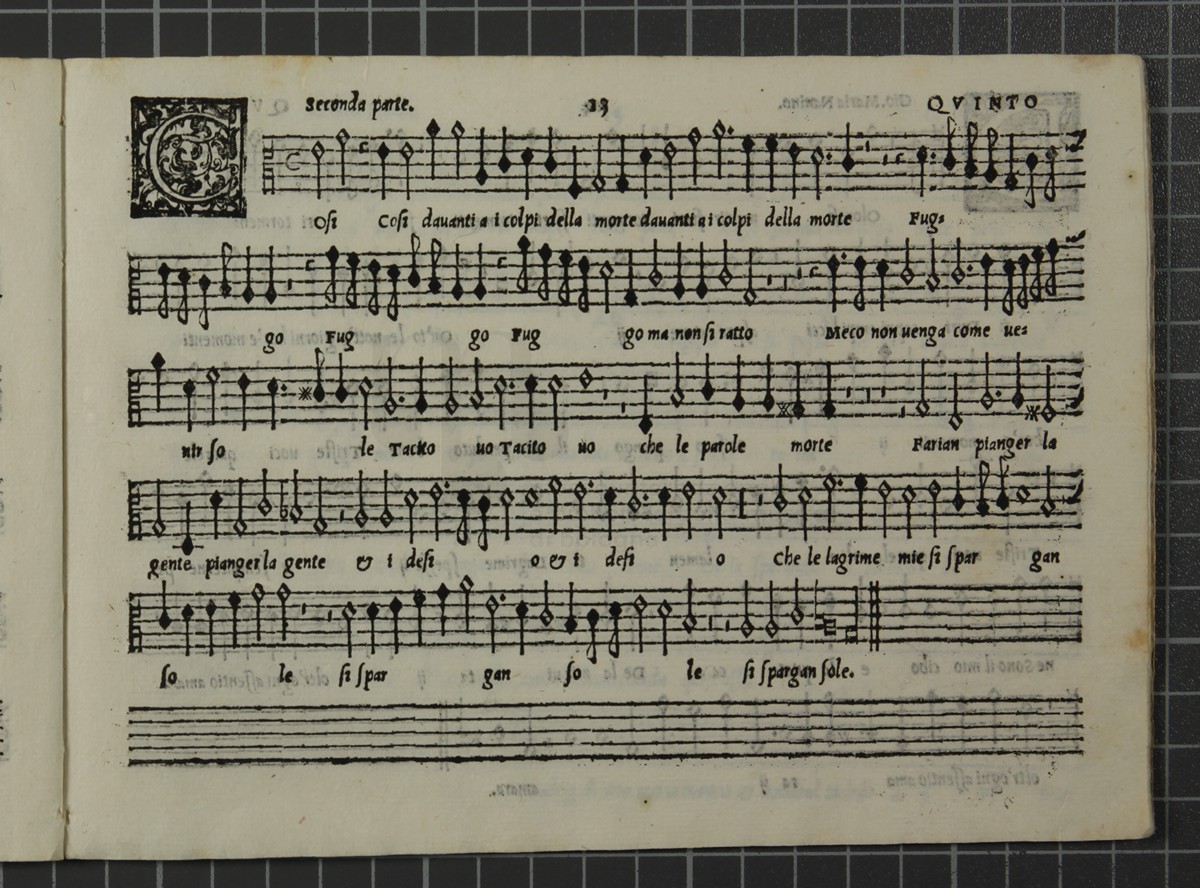 Seconda parte. 23 QVINTO
C Osi Cosi dauanti a i colpi della morte dauanti a i colpi della morte Fug=
go Fug go Fug go ma non si ratto Meco non uenga come ue=
nir so le Tacito uo Tacito uo che le parole morte Farian pianger la
gente pianger la gente & i desi o & i desi o Che le lagrime mie si spar gan
so le si spar gan so le si spargan sole.